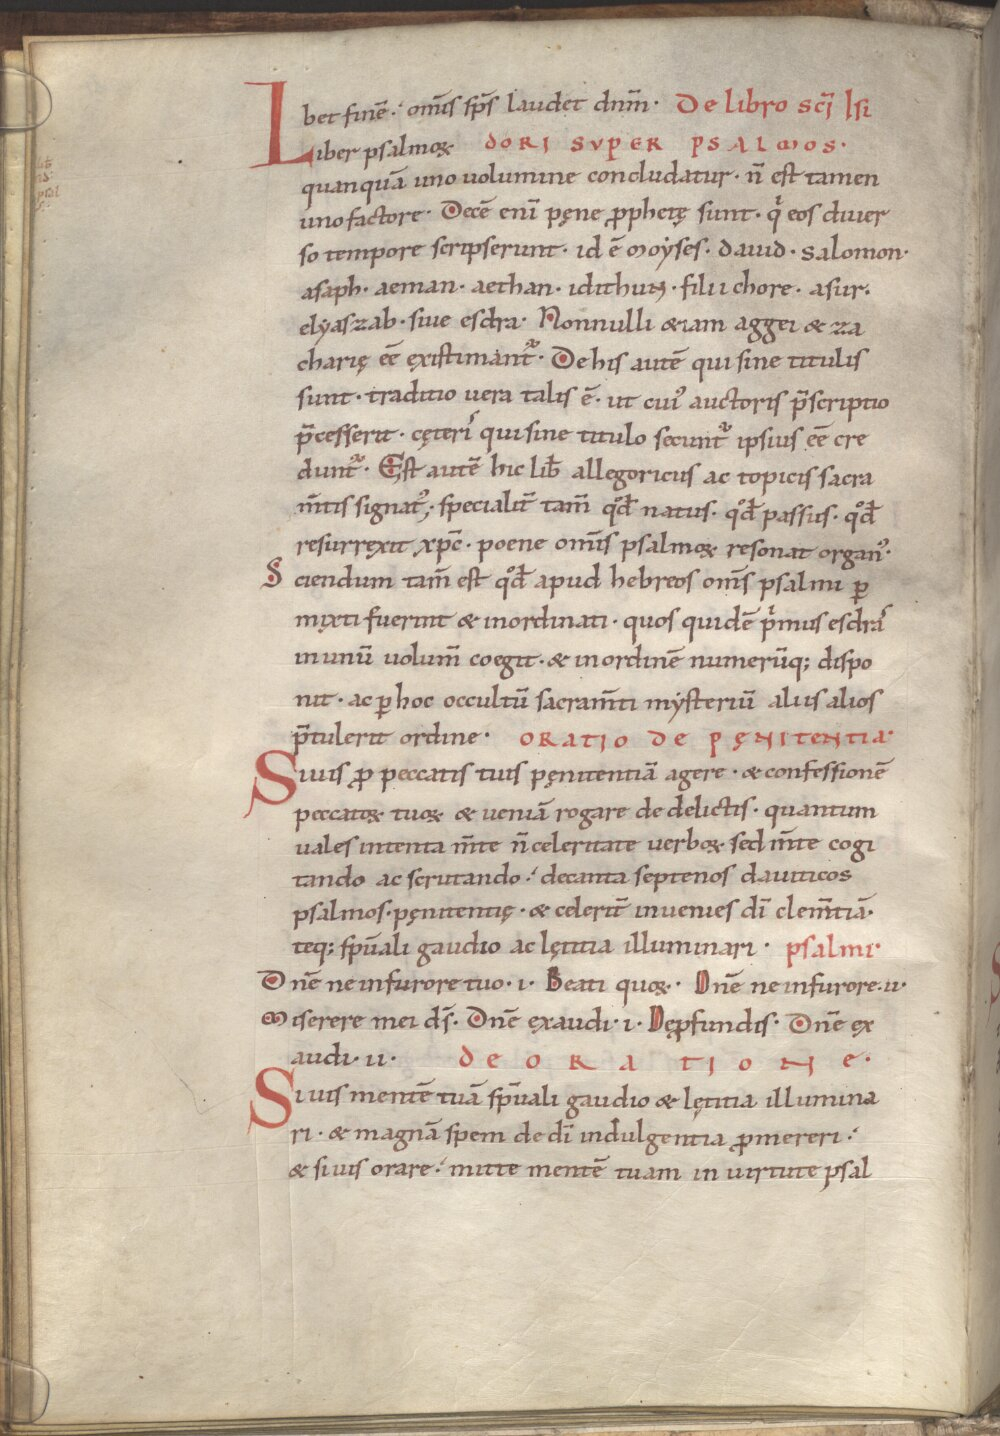 bet finē. omīs sp̄s laudet dn̄m. De libro sc̄i Isi
Liber psalmoꝝ DORI SVPER PSALMOS.
quanquā uno uolumine concludatur. n̄ est tamen
uno factore. Decē eni pęne ꝓphetę sunt. qͥ eos diuer
so tempore scripserunt. id ē moẏses. dauid. salomon.
asaph. aeman. aethan. idithun. filii chore. asur.
elẏaszab. siue esdra. Nonnulli &iam aggei & za
charię eē ęxistimant᷑. De his autē qui sine titulis
sunt. traditio uera talis ē. ut cui᾽ auctoris p̄scriptio
p̄cesserit. cęteri qui sine titulo secunt᷑ ipsius eē cre
dunt᷑. Est autē hic lib̄ allegoricus ac topicis sacra
m̄tis signat᾽. specialit̄ tam̄ qͦd natus. qͦd passus. qͦd
resurręxit xp̄c. poene omīs psalmoꝝ resonat organ᾽.
Sciendum tam̄ est qͦd apud hebreos om̄s psalmi ꝑ
mixti fuerint & inordinati. quos quidē pͥmus esdra
in unū uolum̄ coegit. & in ordinē numerūq; dispo
nit. ac ꝑ hoc occultū sacram̄ti mẏsteriū aliis alios
p̄tulerit ordine. ORATIO DE PĘNITENTIA.
Si uis ꝓ peccatis tuis pęnitentiā agere. & confessionē
peccatoꝝ tuoꝝ & ueniā rogare de delictis. quantum
uales intenta m̄te n̄ celeritate uerboꝝ sed m̄te cogi
tando ac scrutando. decanta septenos dauiticos
psalmos. pęnitentię. & celerit̄ inuenies dī clem̄tiā.
teq; sp̄uali gaudio ac lętitia illuminari. psalmi.
Dn̄e ne in furore tuo. i. Beati quoꝝ. Dn̄e ne in furore. ii.
Miserere mei ds̄. Dn̄e ęxaudi. i. Deꝓfundis. Dn̄e ęx
audi. ii. DE ORATIONE.
Si uis mentē tuā sp̄uali gaudio & lętitia illumina
ri. & magnā spem de dī indulgentia ꝓmereri.
& si uis orare. mitte mentē tuam in uirtute psal